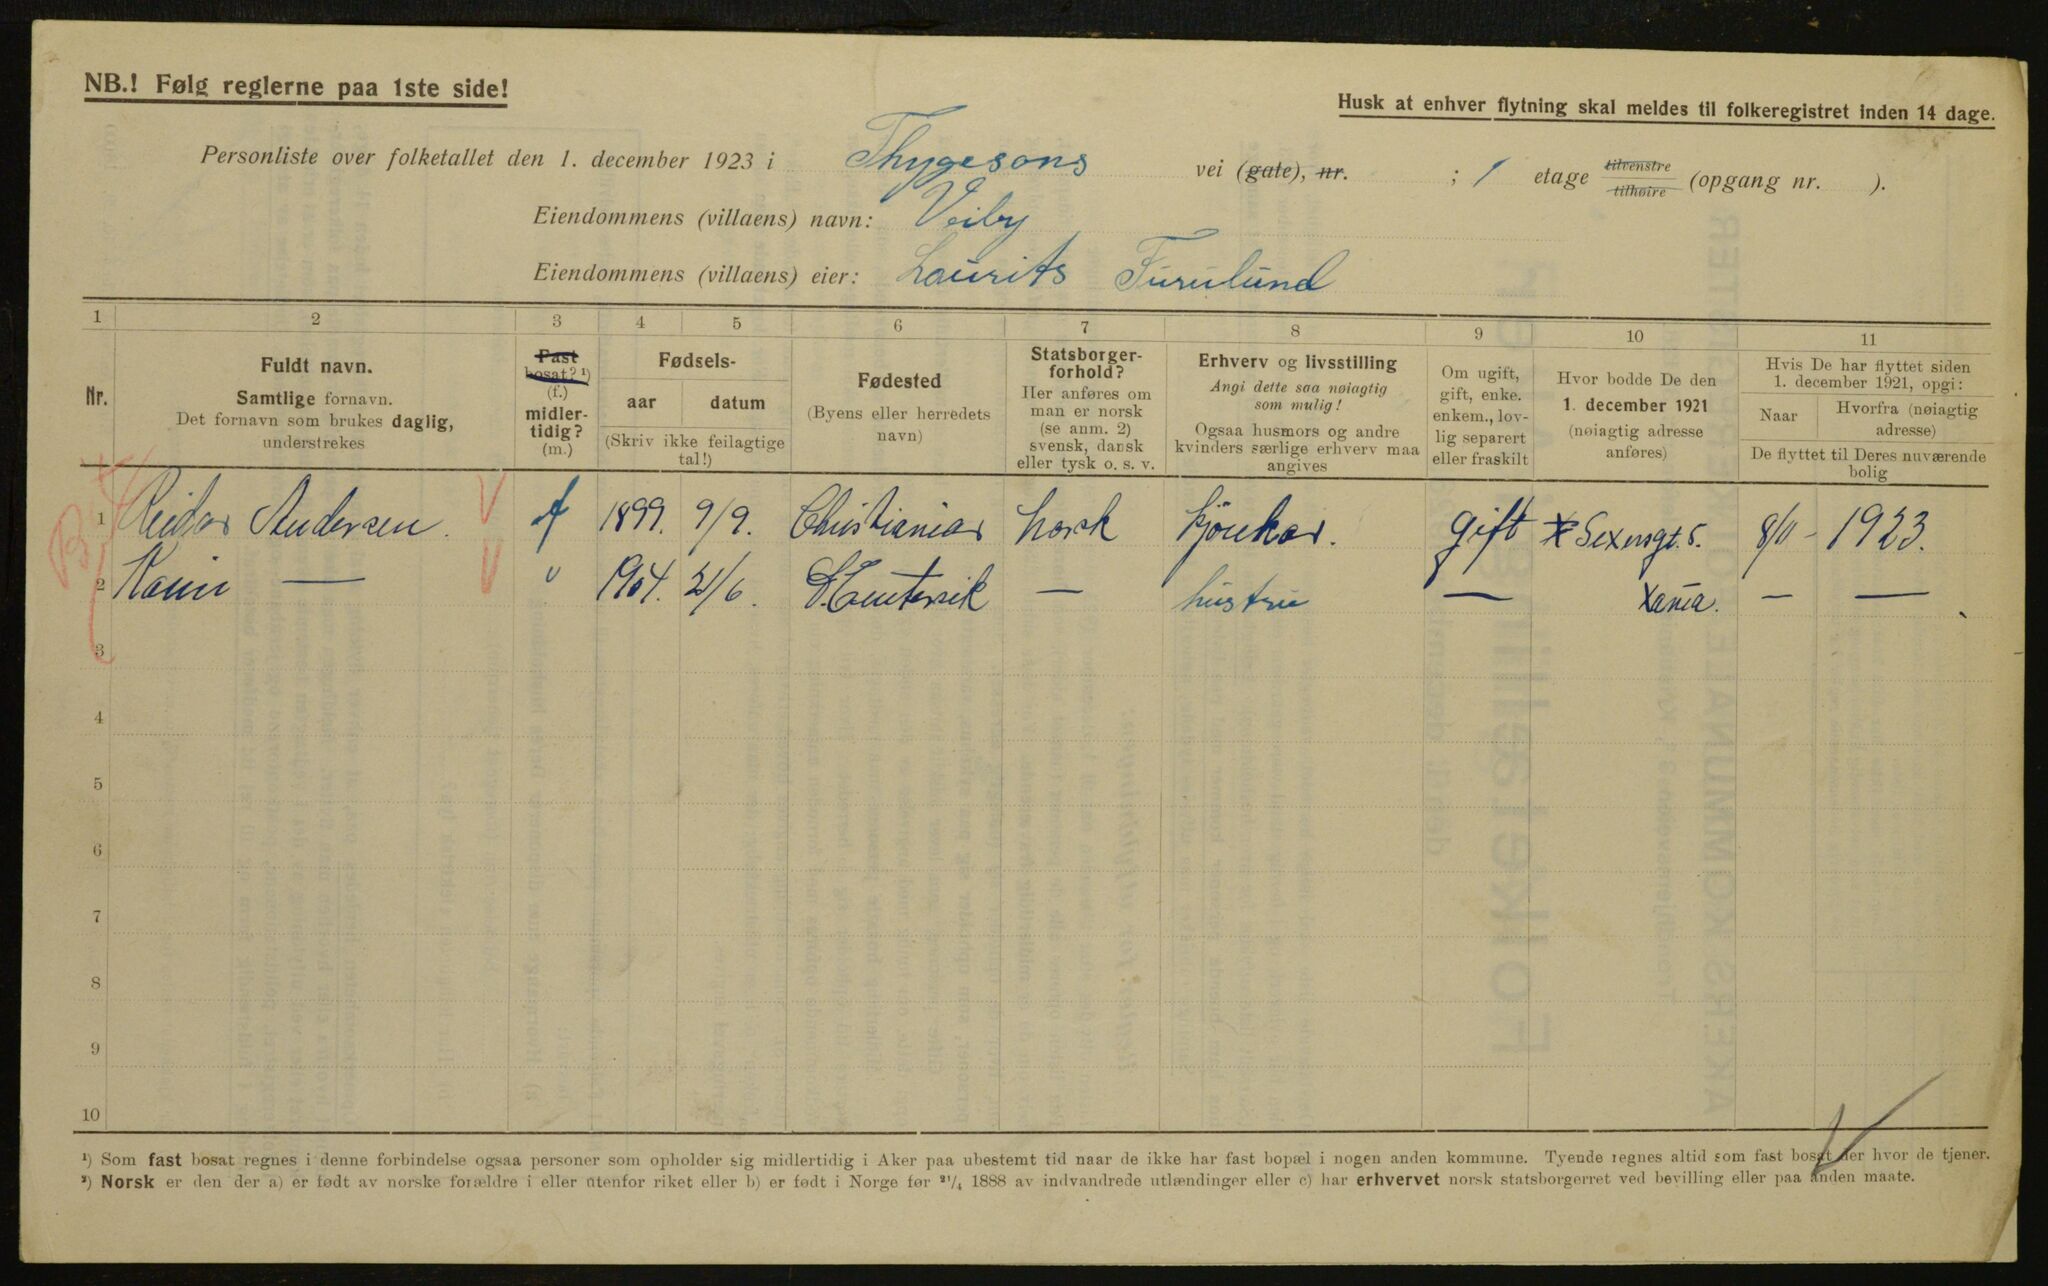 NB.! Følg reglerne paa 1ste side!
Husk at enhver flytning skal meldes til folkeregistret inden 14 dage.
Personliste over folketallet den 1. december 1923 i Thygesons vei (gate), nr. ; 1 etage tilvenstre tilhøire (opgang nr. ).
Eiendommens (villaens) navn: Veiby
Eiendommens (villaens) eier: Laurits Furulund
1 2 3 4 5 6 7 8 9 10 11
Nr.
Fuldt navn.
Samtlige fornavn.
Det fornavn som brukes daglig,
understrekes
Fast
bosat? ¹)
(f.)
midler-
tidig?
(m.)
Fødsels-
aar datum
(Skriv ikke feilagtige
tal!)
Fødested
(Byens eller herredets
navn)
Statsborger-
forhold?
Her anføres om
man er norsk
(se anm. 2)
svensk, dansk
eller tysk o. s. v.
Erhverv og livsstilling
Angi dette saa nøiagtig
som mulig!
Ogsaa husmors og andre
kvinders særlige erhverv maa
angives
Om ugift,
gift, enke.
enkem., lov-
lig separert
eller fraskilt
Hvor bodde De den
1. december 1921
(nøiagtig adresse
anføres)
Hvis De har flyttet siden
1. december 1921, opgi:
Naar Hvorfra (nøiagtig
adresse)
De flyttet til Deres nuværende
bolig
1 Reidar Andersen. f 1899. 9/9. Christiania norsk gift 8/11 - 1923.
2 — " 1904. 21/6. — hustru — Xania. — —
3
4
5
6
7
8
9
10
¹) Som fast bosat regnes i denne forbindelse ogsaa personer som opholder sig midlertidig i Aker paa ubestemt tid naar de ikke har fast bopæl i nogen anden kommune. Tyende regnes altid som fast bosat der hvor de tjener.
²) Norsk er den der a) er født av norske forældre i eller utenfor riket eller b) er født i Norge før ²¹/₄ 1888 av indvandrede utlændinger eller c) har erhvervet norsk statsborgerret ved bevilling eller paa anden maate.